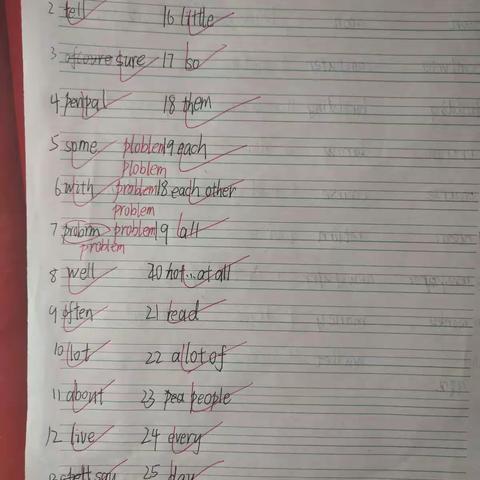 2 tell 16 little
3 sure 17 so
4 penpal 18 them
5 some ploblem 19 each
ploblem
6 with problem 18 each other
problem
7 probrm problem 19 all
problem
8 well 20 not...at all
9 often 21 read
10 lot 22 a lot of
11 about 23 pea people
12 live 24 every
say 25 day